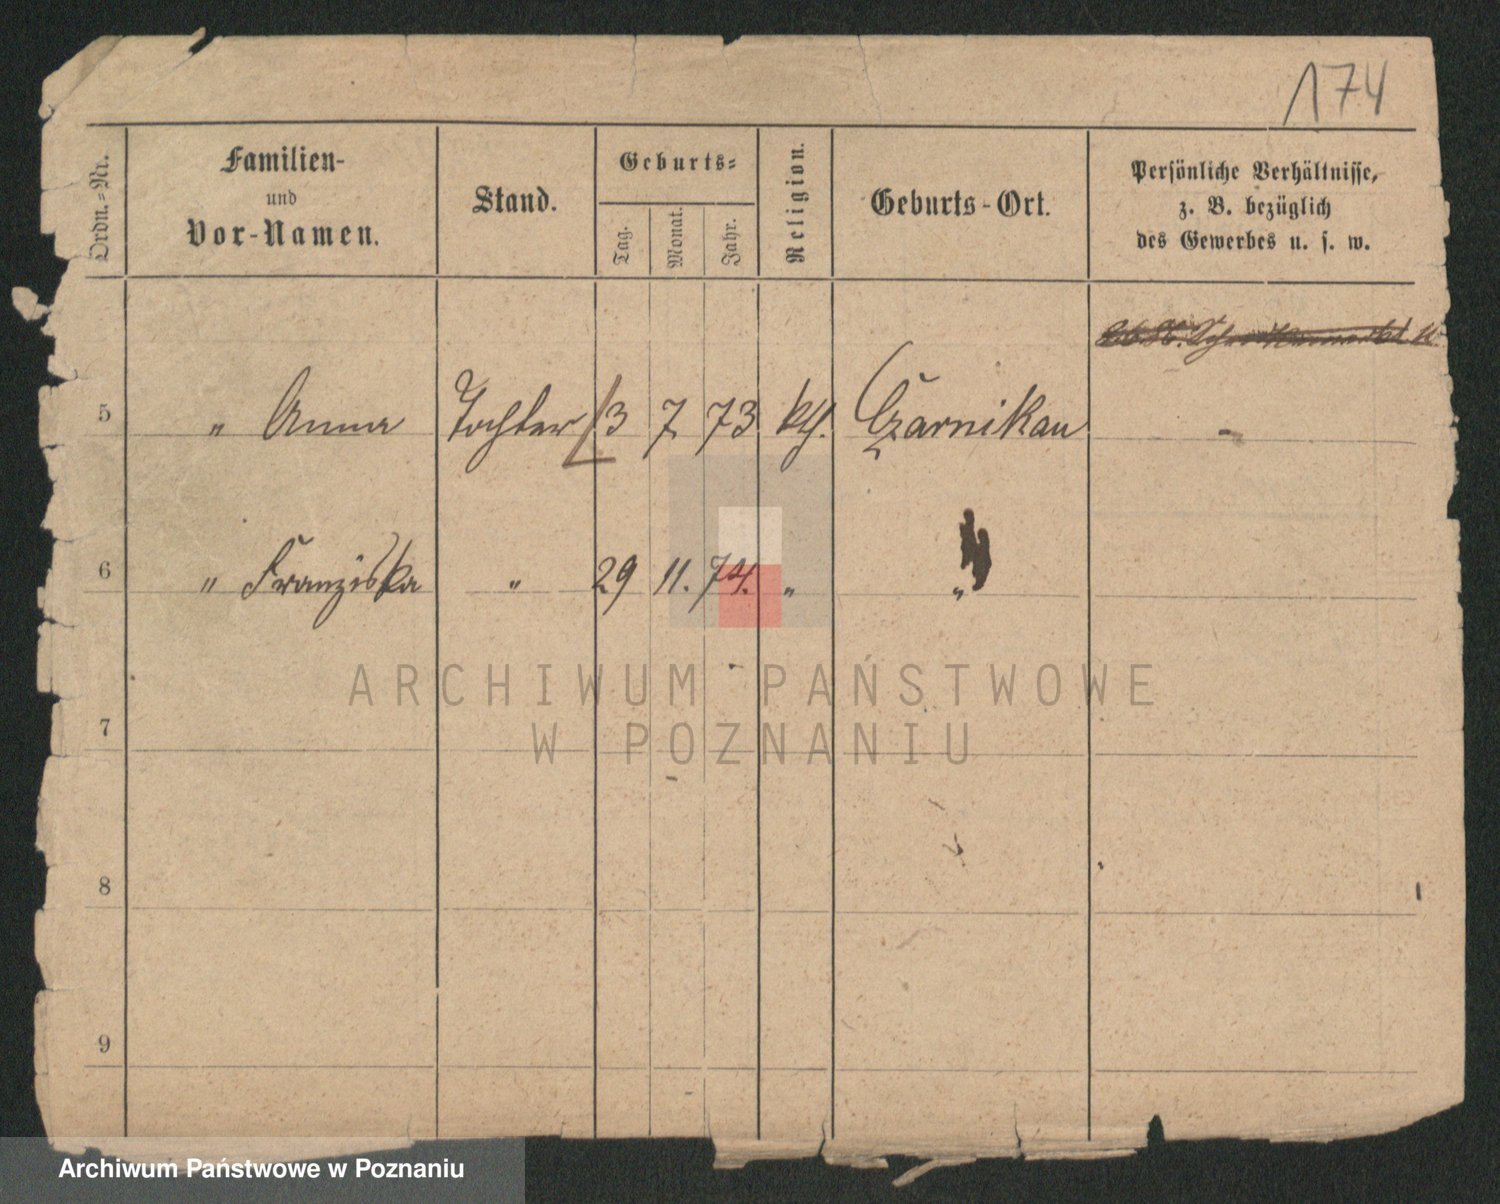 174
Ordn.-Nr.
Familien-
und
Vor-Namen.
Stand.
Geburts-
Tag.
Monat.
Jahr.
Religion.
Geburts-Ort.
Persönliche Verhältnisse,
z. B. bezüglich
des Gewerbes u. s. w.
5 " Anna Tochter 13 7 73 kth. Czarnikau -
6 " Franziska " 29 11. 74. " "
7
8
9
ARCHIWUM PAŃSTWOWE
W POZNANIU
Archiwum Państwowe w Poznaniu